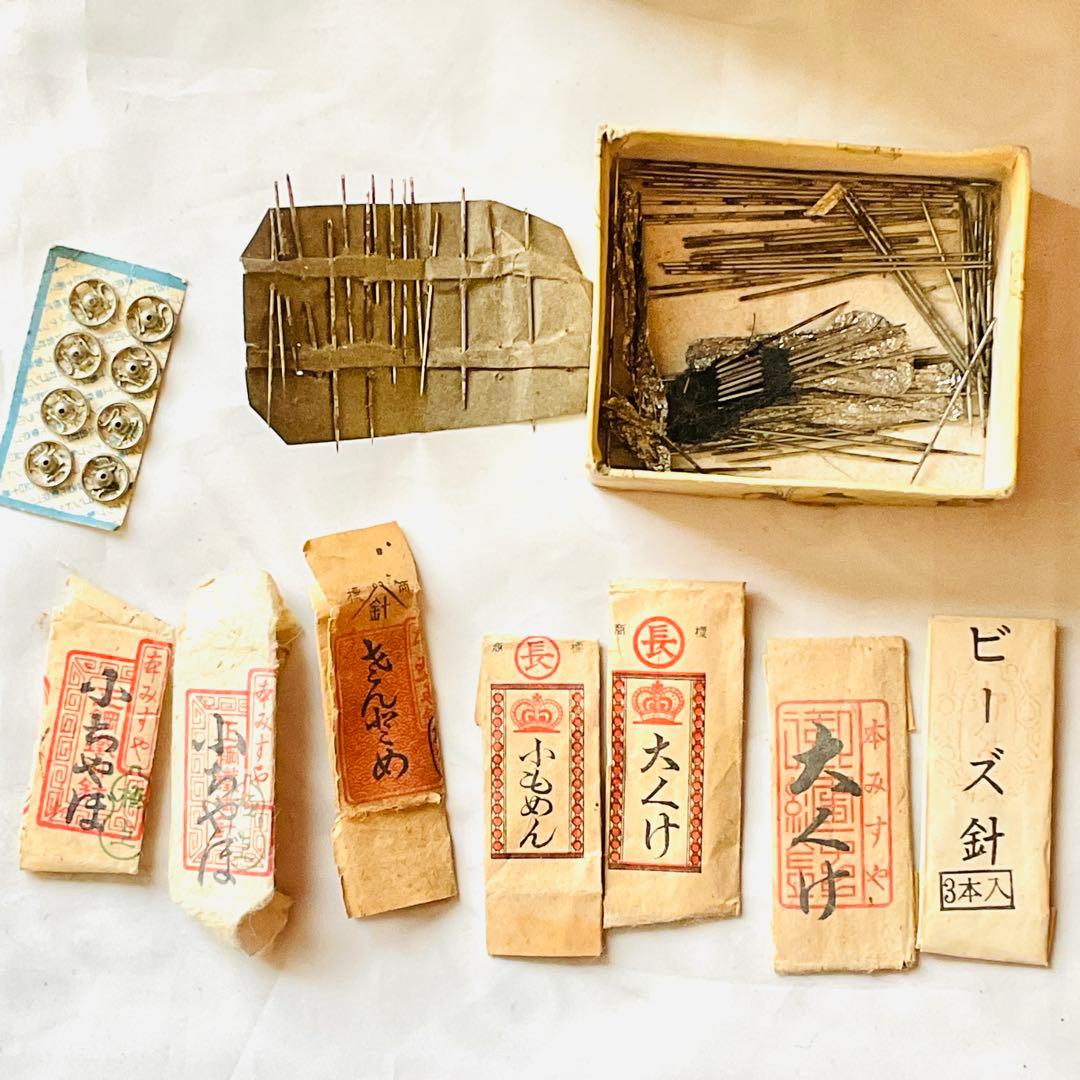 本みすや
小ちやほ
本みすや
小ちやほ
商標
針
きんとめ
商標
長
小もめん
商標
長
大くけ
本みすや
大くけ
ビーズ針
3本入